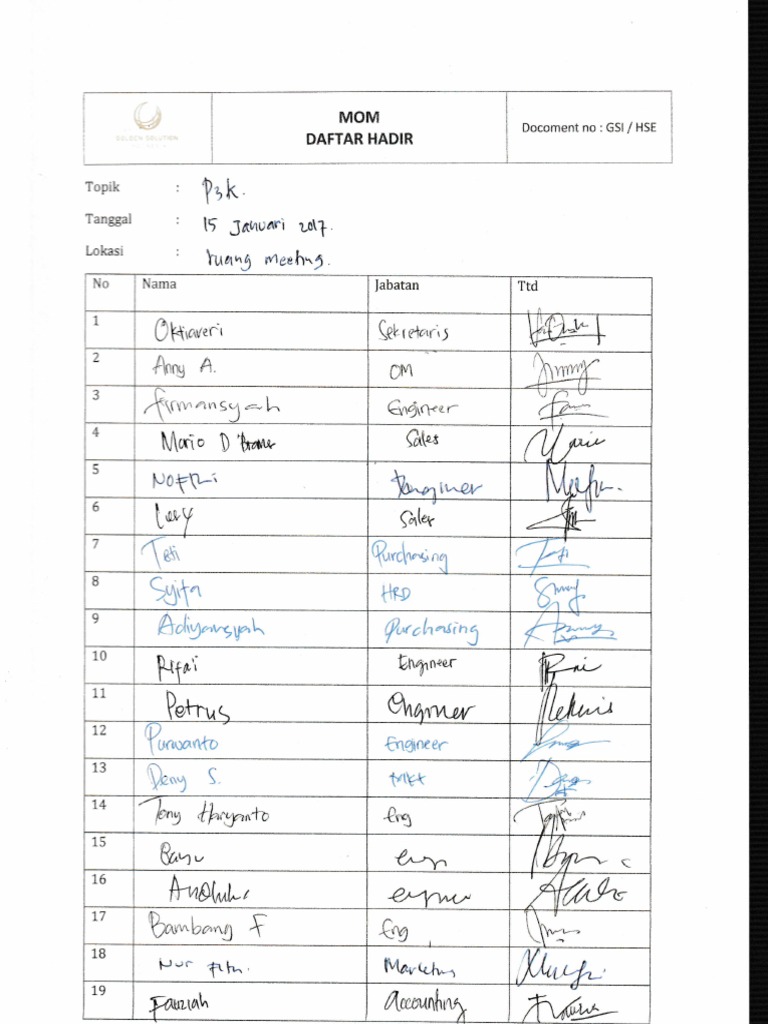 GOLDEN SOLUTION
MOM
DAFTAR HADIR
Docoment no : GSI / HSE
Topik : P3K.
Tanggal : 15 Januari 2017.
Lokasi : ruang meeting.
No Nama Jabatan Ttd
1 Oktiaveri Sekretaris
2 Anny A. OM
3 firmansyah Engineer
4 Mario D Sales
5 NOFRi Engineer
6 Sales
7 Teti Purchasing
8 Syifa HRD
9 Adiyansyah Purchasing
10 Rifai Engineer
11 Petrus Engineer
12 Purwanto Engineer
13 Deny S. MKT
14 Tony Haryanto Eng
15 Bayu eng
16 engineer
17 Bambang F Eng
18 Nur Fitri. Marketing
19 Fauziah Accounting